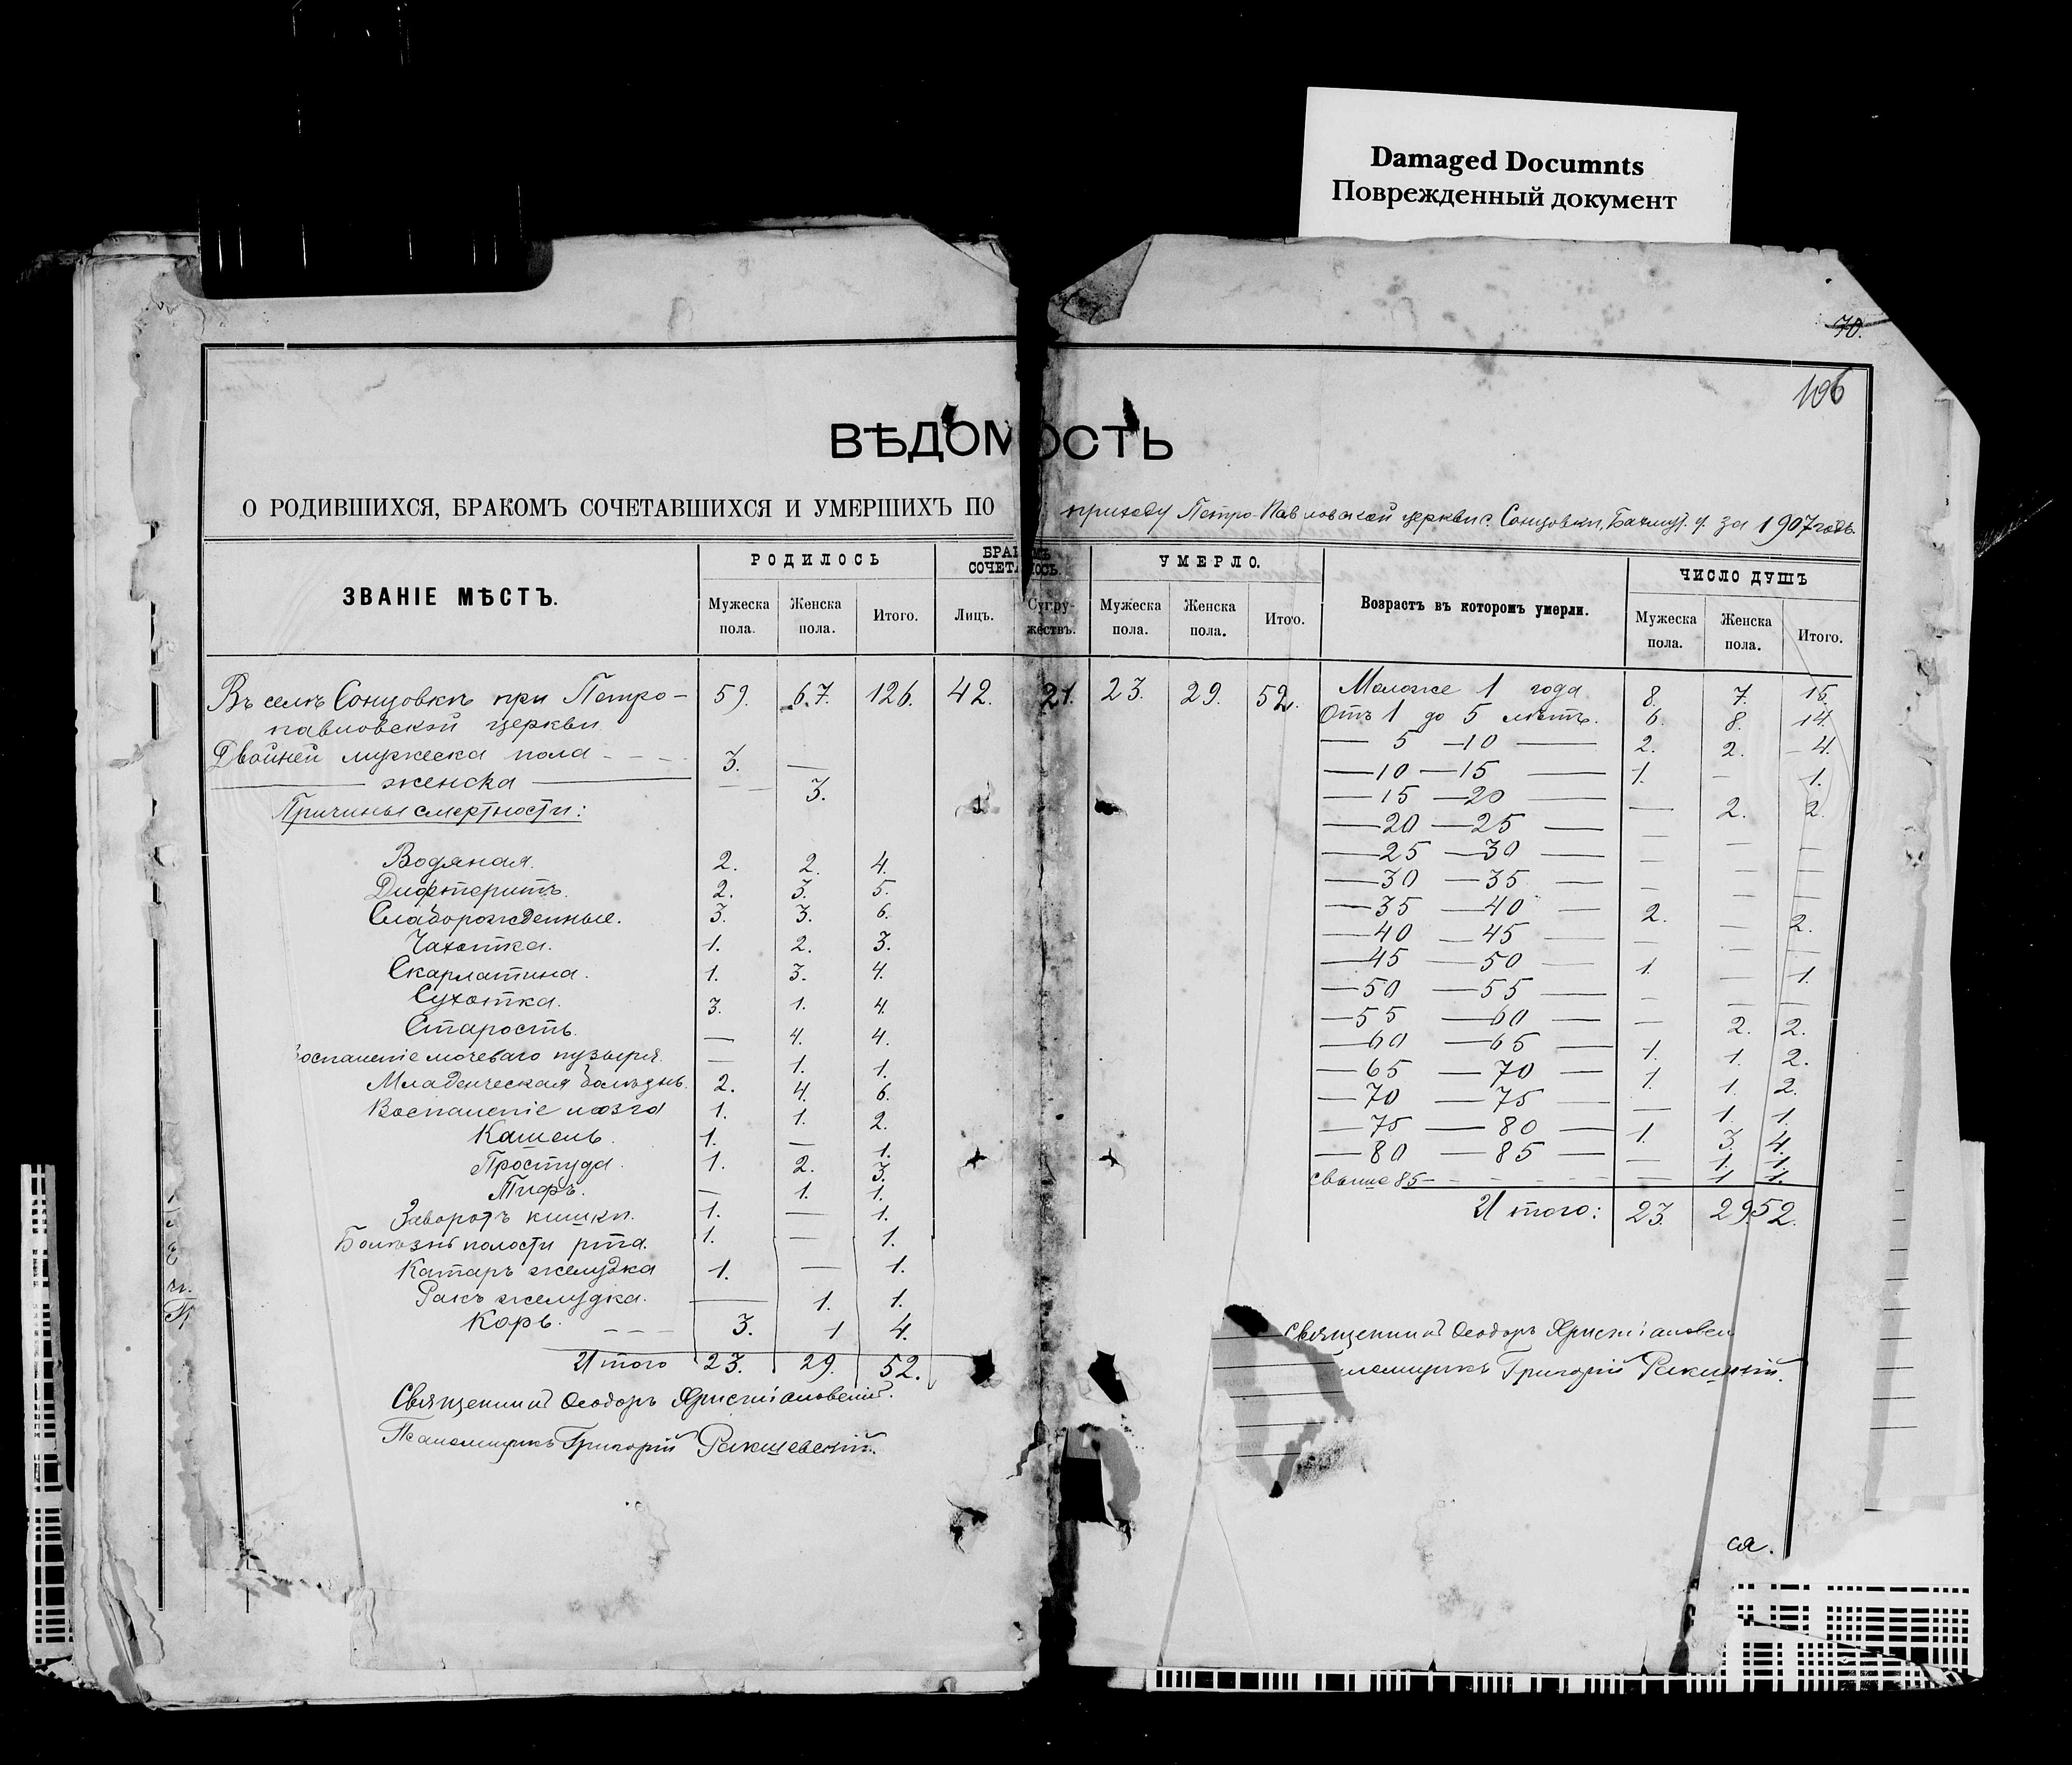 Damaged Documnts
Поврежденный документ
70.
106
ВѢДОМОСТЬ
О РОДИВШИХСЯ, БРАКОМЪ СОЧЕТАВШИХСЯ И УМЕРШИХЪ ПО приходу Петро-Павловской церкви с. Сонцовки, Бахмут. у. за 1907 годъ.
ЗВАНІЕ МѢСТЪ. РОДИЛОСЬ БРАКОМЪ СОЧЕТАЛОСЬ. УМЕРЛО. Возрастъ въ которомъ умерли. ЧИСЛО ДУШЪ
Мужеска пола. Женска пола. Итого. Лицъ. Супружествъ. Мужеска пола. Женска пола. Итого. Мужеска пола. Женска пола. Итого.
Въ селѣ Сонцовкѣ при Петро- 59. 67. 126. 42. 21. 23. 29. 52.
павловской церкви
Двойней мужеска пола - - - 3. —
— женска — — 3.
Причины смертности:
Водяная. 2. 2. 4.
Дифтеритъ. 2. 3. 5.
Слаборожденные. 3. 3. 6.
Чахотка. 1. 2. 3.
Скарлатина. 1. 3. 4.
Сухотка. 3. 1. 4.
Старость. — 4. 4.
оспаленіе мочеваго пузыря. — 1. 1.
Младенческая болѣзнь. 2. 4. 6.
Воспаленіе мозга 1. 1. 2.
Кашель. 1. — 1.
Простуда. 1. 2. 3.
Тифъ. — 1. 1.
Заворотъ кишки. 1. — 1.
Болѣзнь полости рта. 1. — 1.
Катаръ желудка 1. — 1.
Ракъ желудка. — 1. 1.
Корь. - - - 3. 1 4.
Итого 23. 29. 52.
Священникъ Ѳеодоръ
Псаломщикъ Григорій
Моложе 1 года 8. 7. 15.
Отъ 1 до 5 лѣтъ. 6. 8. 14.
— 5 — 10 — 2. 2. 4.
— 10 — 15 — 1. — 1.
— 15 — 20 — — 2. 2.
— 20 — 25 — — — —
— 25 — 30 — — — —
— 30 — 35 — — — —
— 35 — 40 — 2. — 2.
— 40 — 45 — — — —
— 45 — 50 — 1. — 1.
— 50 — 55 — — — —
— 55 — 60 — — 2. 2.
— 60 — 65 — 1. 1. 2.
— 65 — 70 — 1. 1. 2.
— 70 — 75 — — 1. 1.
— 75 — 80 — 1. 3. 4.
— 80 — 85 — — 1. 1.
свыше 85 - - - — 1 1.
Итого: 23. 29. 52.
Священникъ Ѳеодоръ
ломщикъ Григорій
ся.